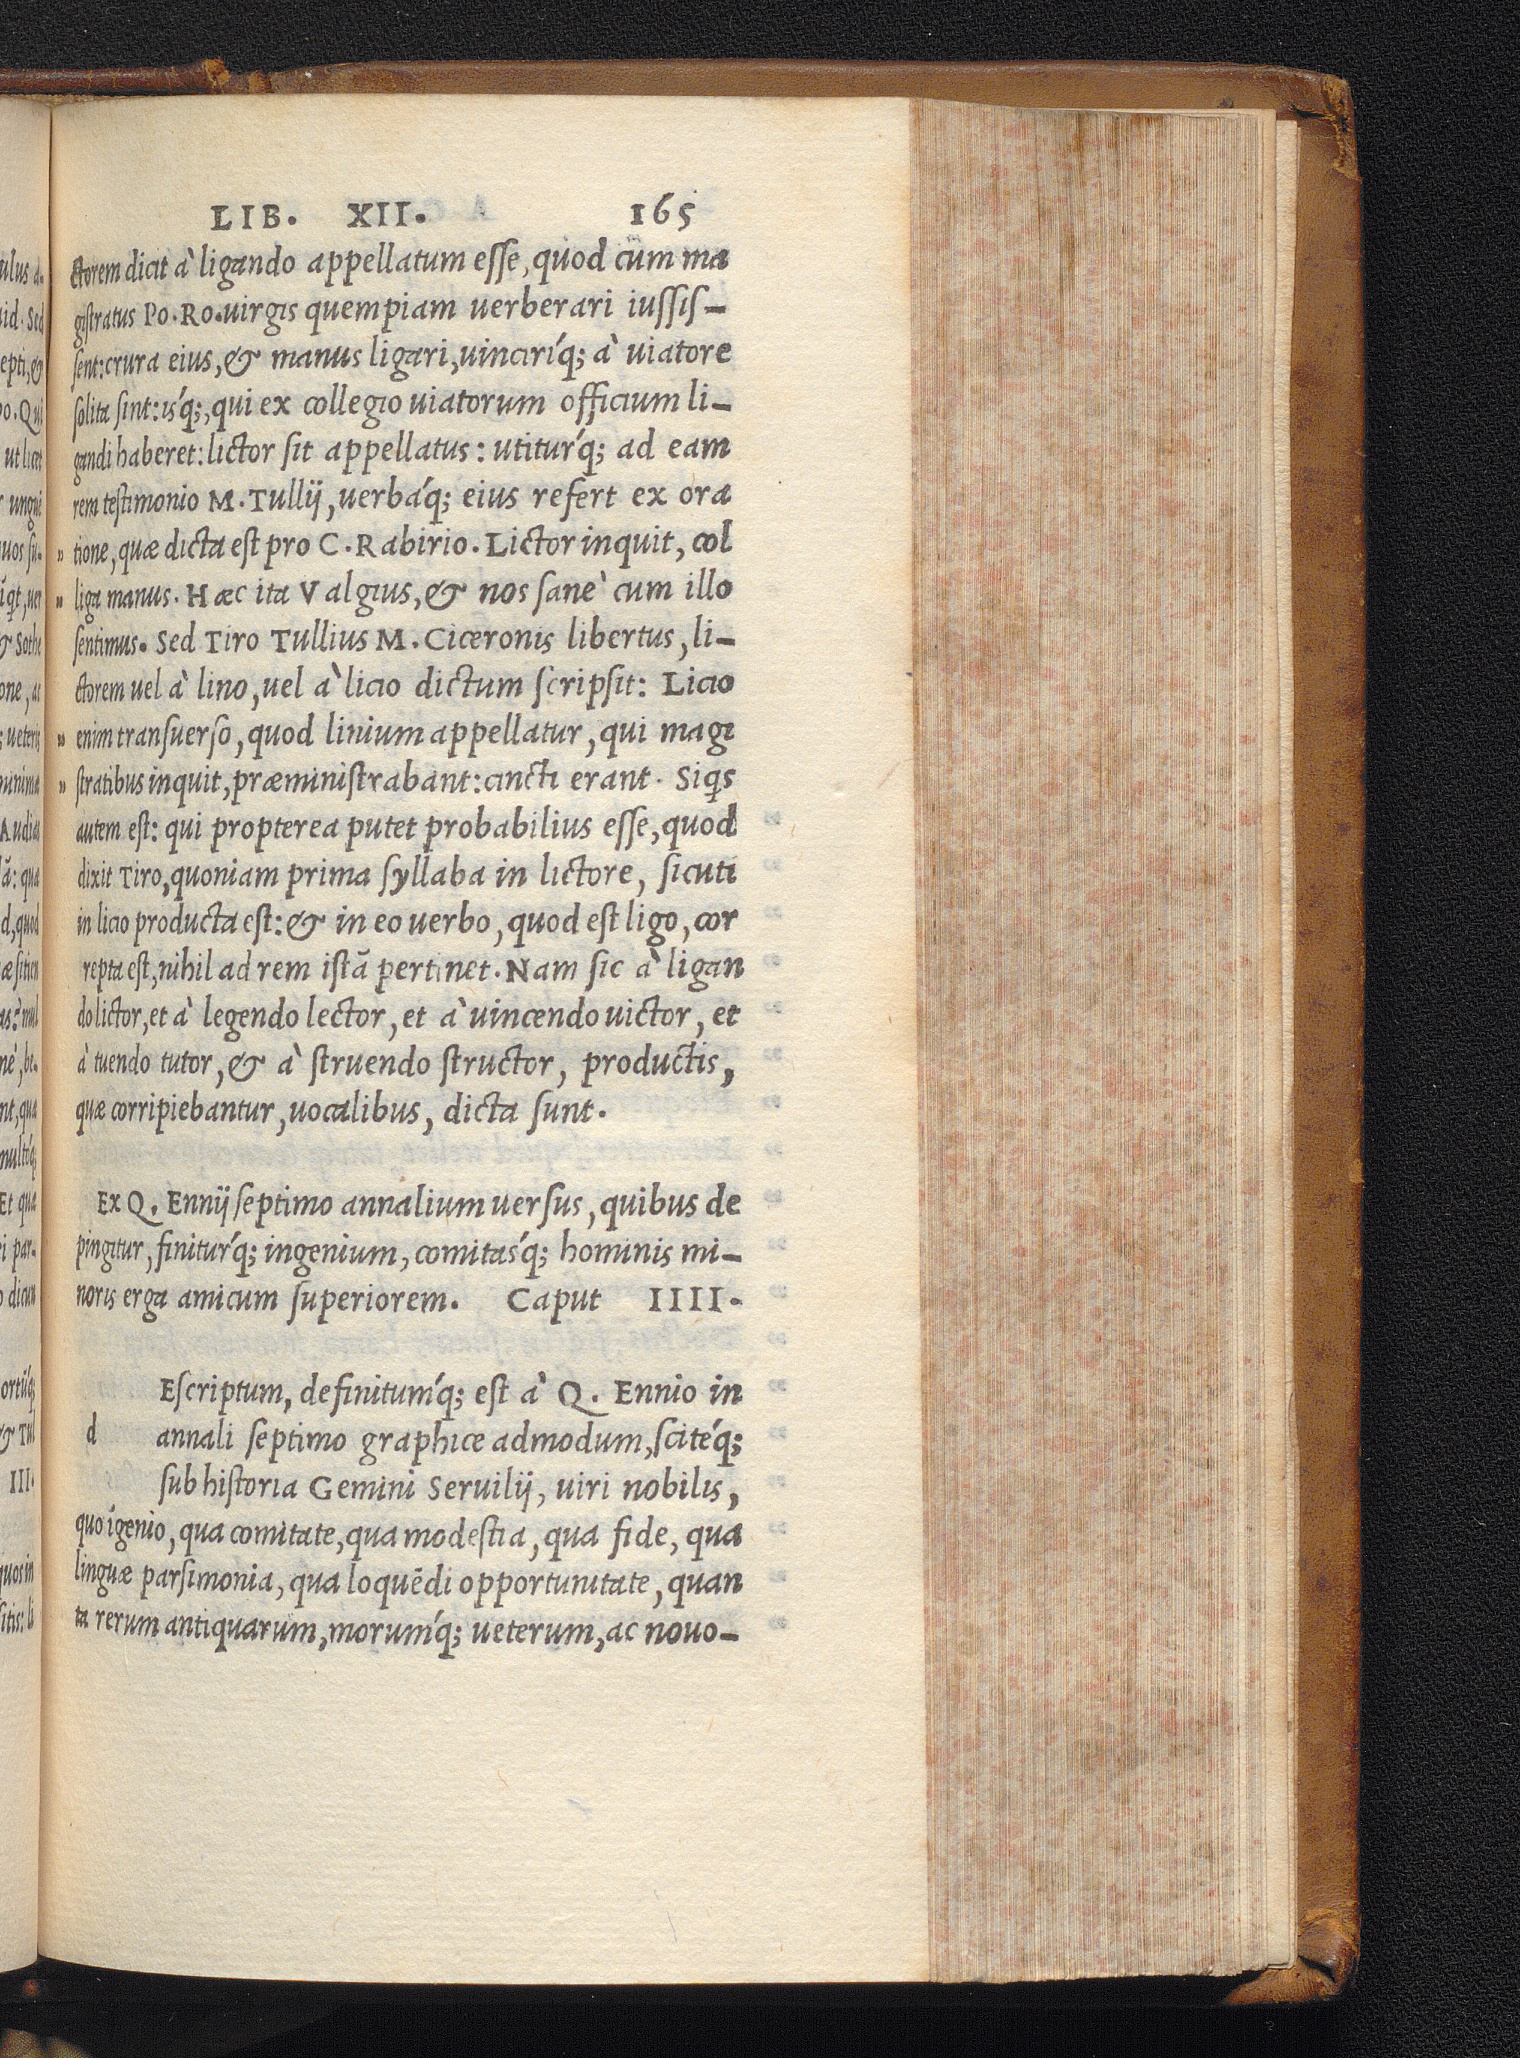 LIB. XII. 165
ctorem dicit à ligando appellatum esse, quod cum ma
gistratus Po. Ro. uirgis quempiam uerberari iussis-
sent: crura eius, & manus ligari, uinciríq; à uiatore
solita sint: ísq;, qui ex collegio uiatorum officium li-
gandi haberet: lictor sit appellatus: utitúrq; ad eam
rem testimonio M. Tullij, uerbáq; eius refert ex ora
" tione, quæ dicta est pro C. Rabirio. Lictor inquit, col
" liga manus. Hæc ita Valgius, & nos sanè cum illo
sentimus. Sed Tiro Tullius M. Ciceronis libertus, li-
ctorem uel à lino, uel à licio dictum scripsit: Licio
" enim transuerso, quod linium appellatur, qui magi
" stratibus inquit, præministrabant: cincti erant. Siqs
autem est: qui propterea putet probabilius esse, quod
dixit Tiro, quoniam prima syllaba in lictore, sicuti
in licio producta est: & in eo uerbo, quod est ligo, cor
repta est, nihil ad rem istā pertinet. Nam sic à ligan
do lictor, et à legendo lector, et à uincendo uictor, et
à tuendo tutor, & à struendo structor, productis,
quæ corripiebantur, uocalibus, dicta sunt.
Ex Q. Ennij septimo annalium uersus, quibus de
pingitur, finitúrq; ingenium, comitásq; hominis mi-
noris erga amicum superiorem. Caput IIII.
Escriptum, definitúmq; est à Q. Ennio in
d annali septimo graphice admodum, scitéq;
sub historia Gemini Seruilij, uiri nobilis,
quo īgenio, qua comitate, qua modestia, qua fide, qua
linguæ parsimonia, qua loquēdi opportunitate, quan
ta rerum antiquarum, morúmq; ueterum, ac nouo-